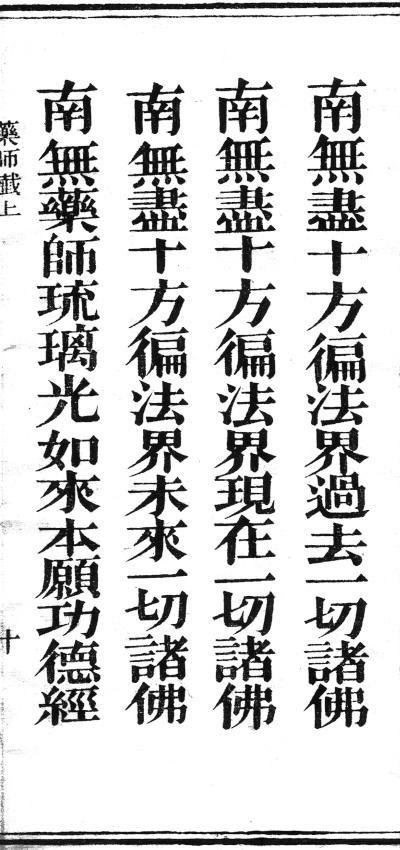 南無盡十方徧法界過去一切諸佛
南無盡十方徧法界現在一切諸佛
南無盡十方徧法界未來一切諸佛
南無藥師琉璃光如來本願功德經
藥師懺上
十